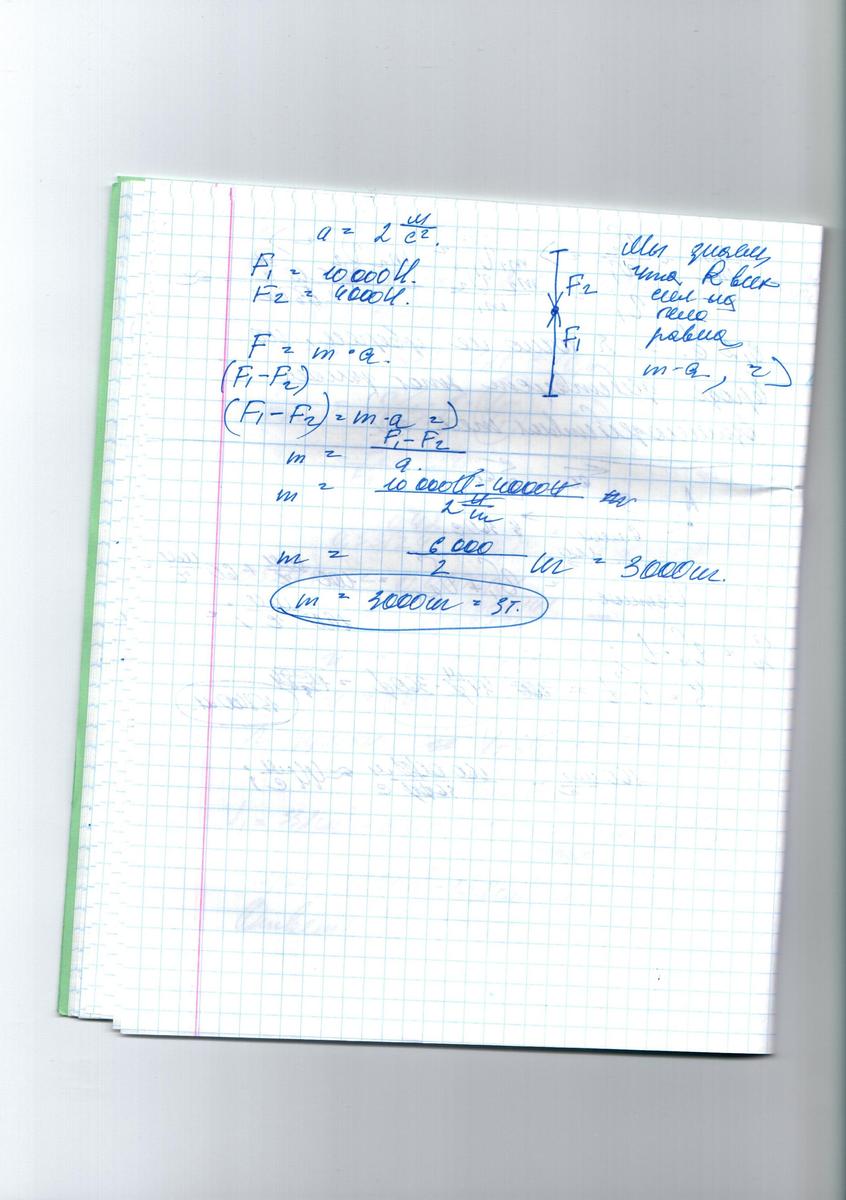 a = 2 м/с².
F₁ = 10 000 Н.
F₂ = 4000 Н.
F = m · a.
(F₁ – F₂)
(F₁ – F₂) = m · a =)
m = (F₁ – F₂)/a.
m = (10 000 Н – 4000 Н)/2
m = 6 000/2 кг = 3000 кг.
m = 3000 кг = 3т.
F₂
F₁
Мы знаем,
что R всех
сил на
тело
равна
m · a, =)